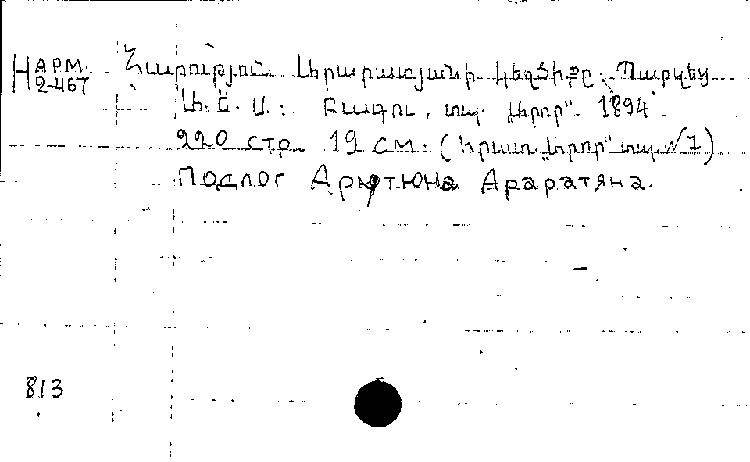 Н АРМ. 2-467
Յարություն Արարատյանի կեղծիքը: Պարզեց
Մ. Ե. Ս.: Բագու, տպ. "Արոր". 1894.
220 стр. 19 см. (Հրատ. "Արոր" տպ. №7)
Подлог Арутюна Араратяна.
813